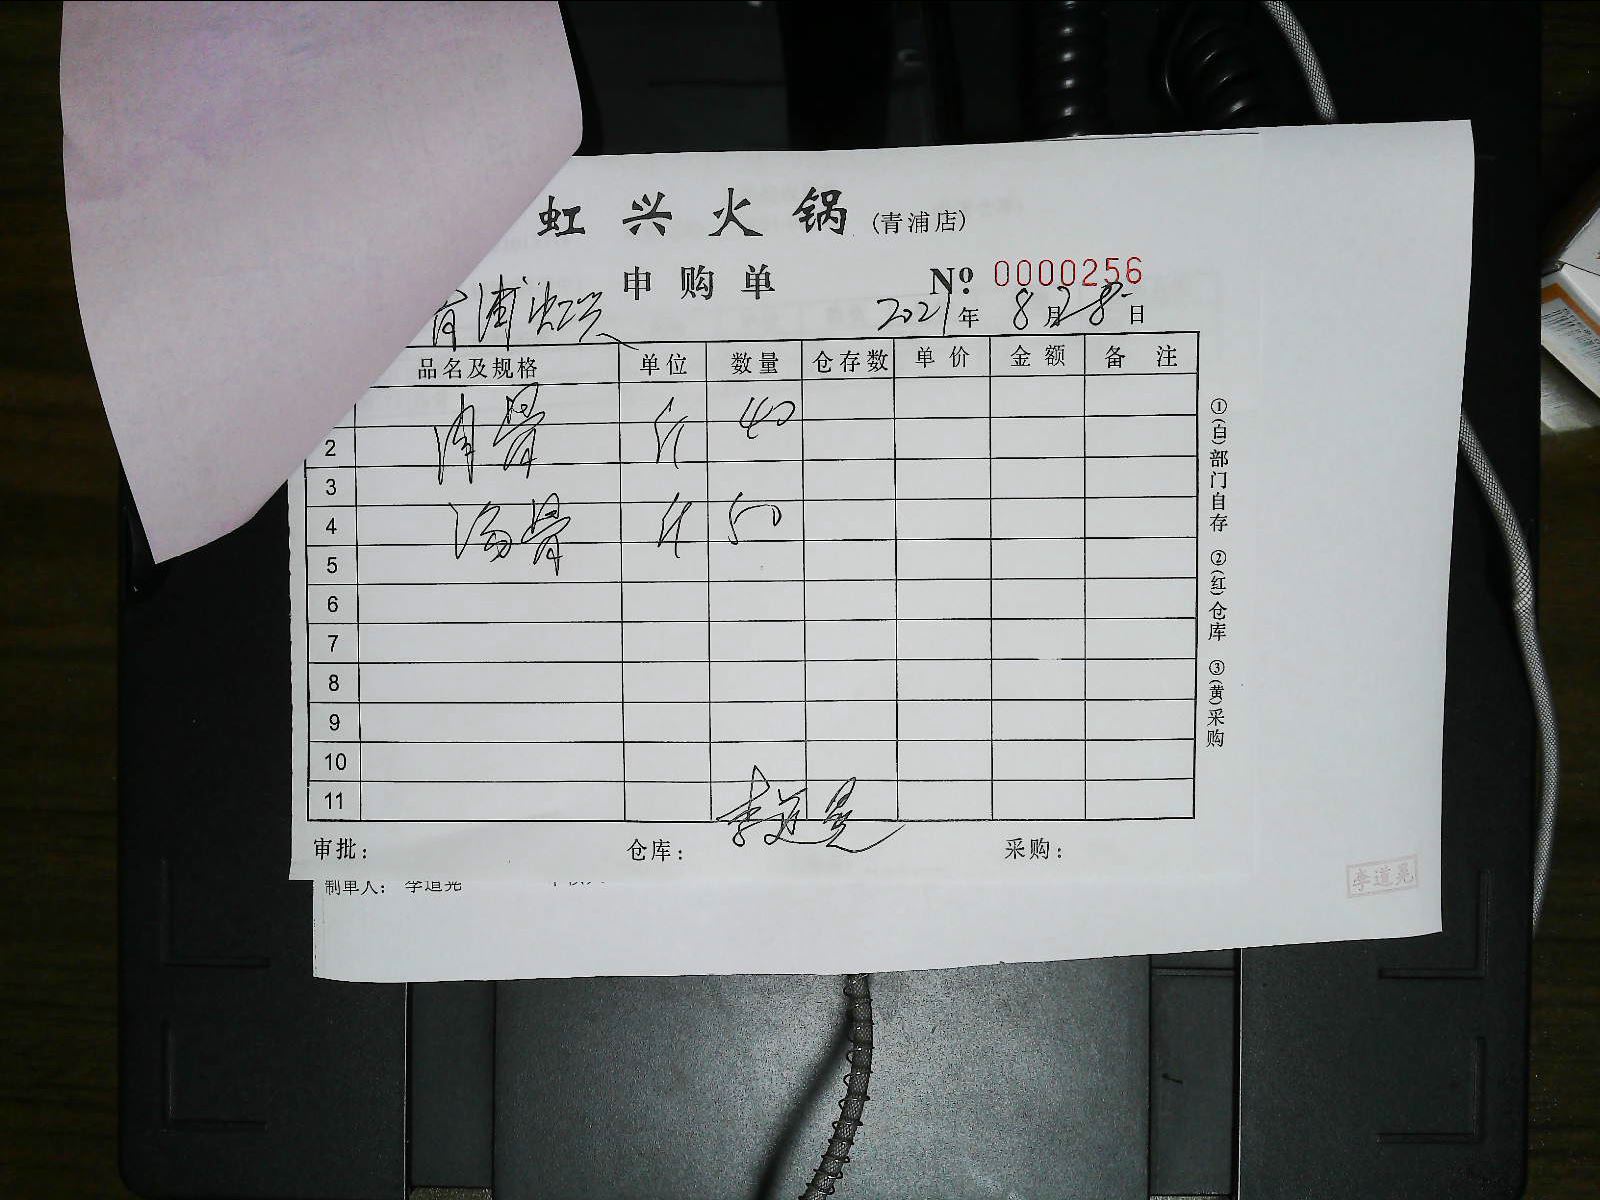 虹兴火锅(青浦店)
申购单 Nº: 0000256
青浦虹兴 2021年8月28日
品名及规格 单位 数量 仓存数 单价 金额 备注
肉骨 斤 40
2
3
汤骨 斤 50
4
5
6
7
8
9
10
11
审批: 仓库: 李道晃 采购:
①(白)部门自存 ②(红)仓库 ③(黄)采购
制单人: 李道晃
李道晃